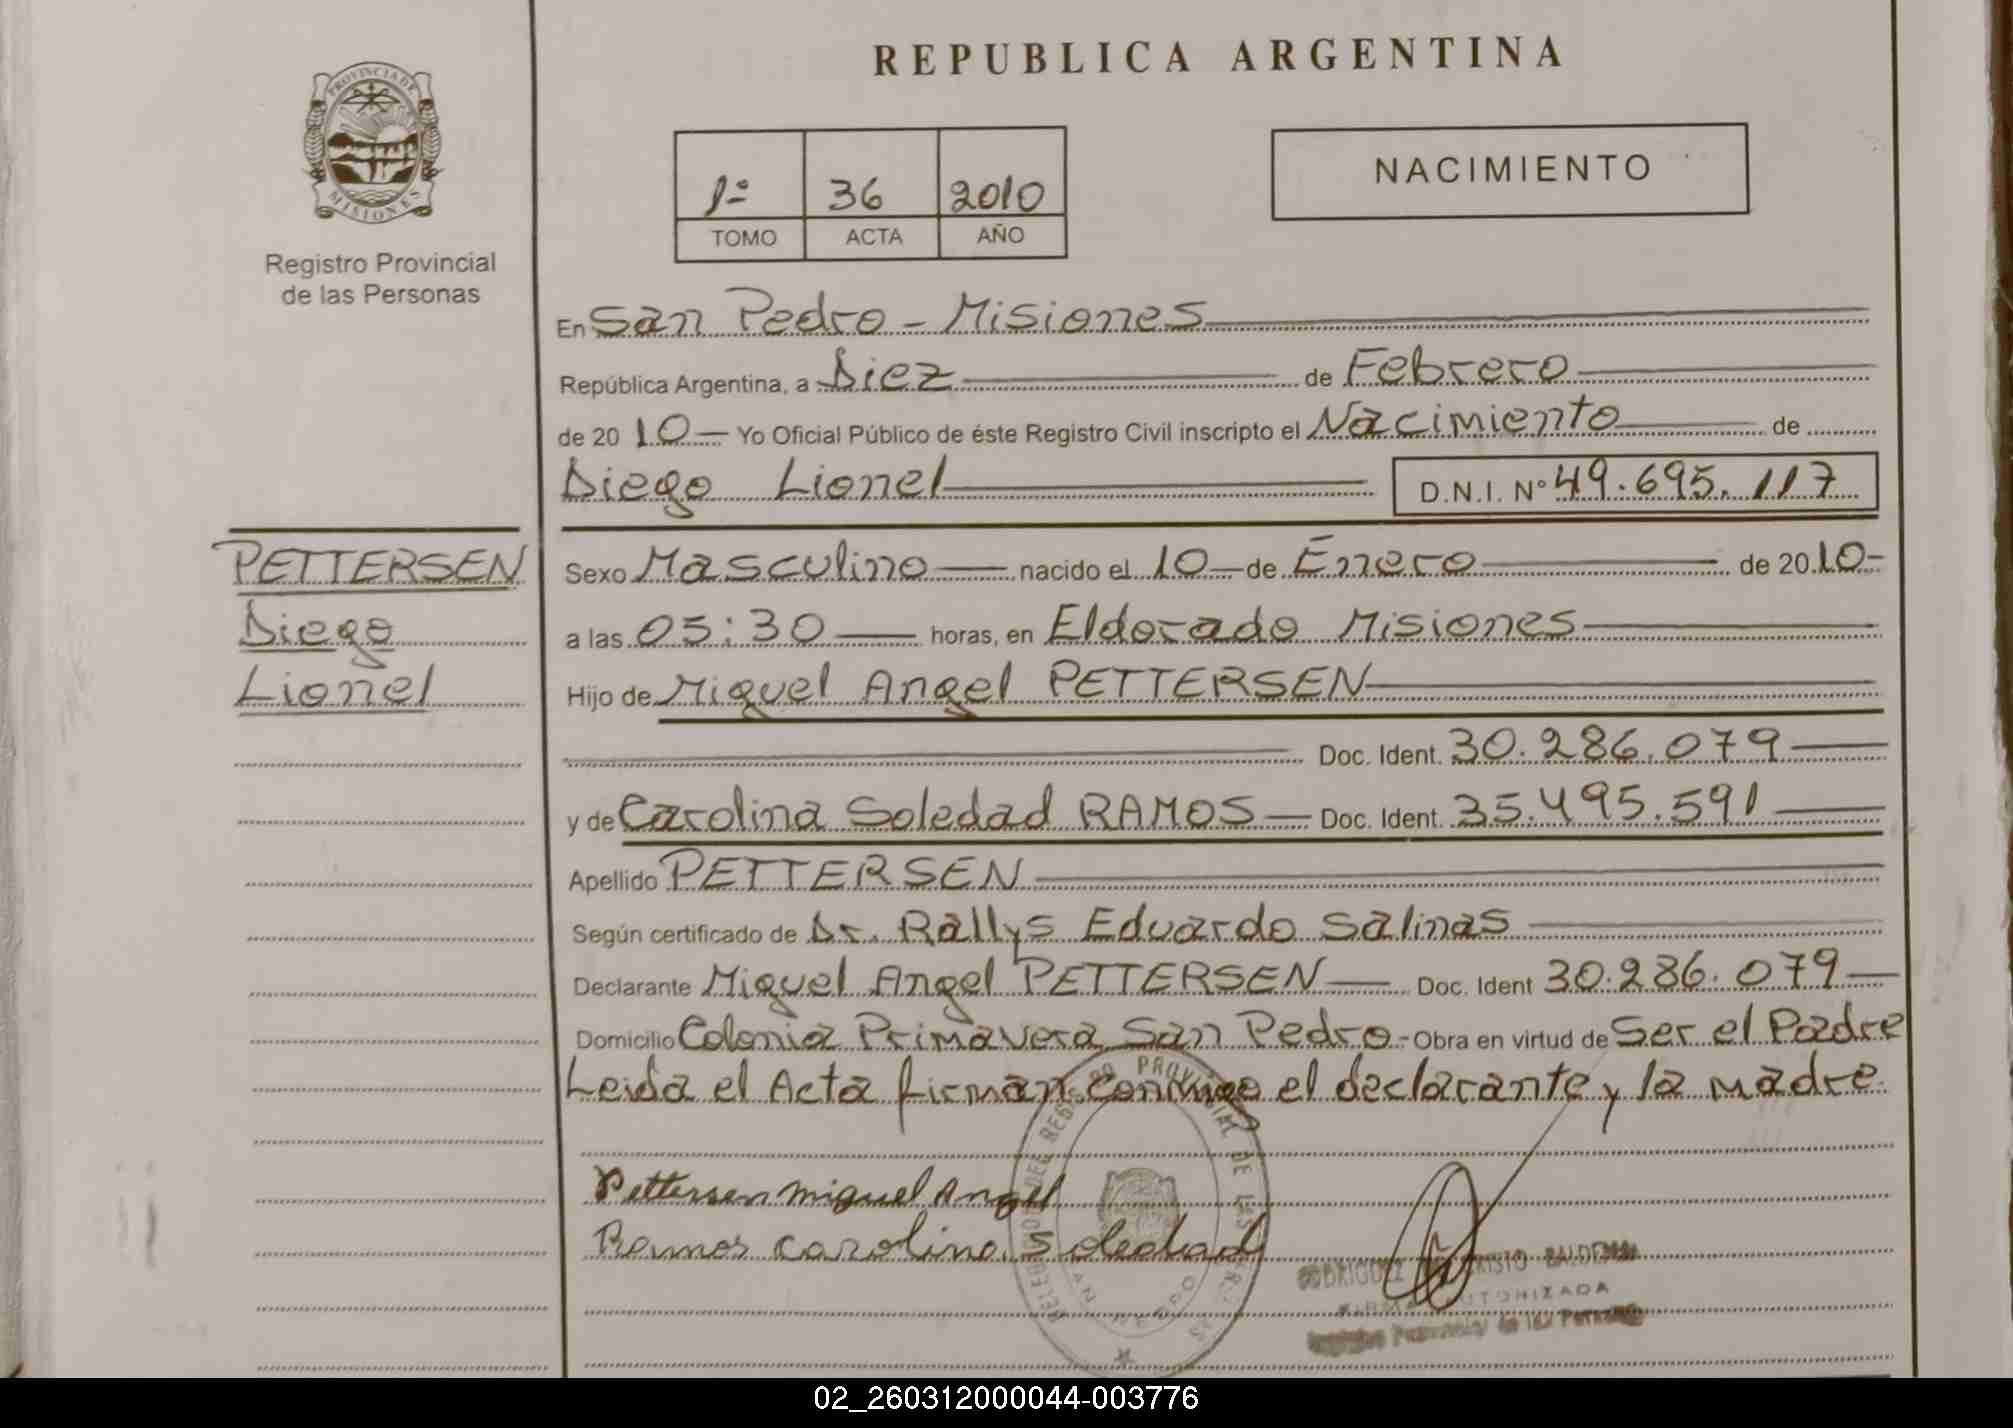 REPUBLICA ARGENTINA
PROVINCIA DE
MISIONES
Registro Provincial
de las Personas
1º 36 2010
TOMO ACTA AÑO
NACIMIENTO
En San Pedro - Misiones
República Argentina, a Diez de Febrero
de 20 10 Yo Oficial Público de éste Registro Civil inscripto el Nacimiento de
Diego Lionel D.N.I. Nº 49.695.117
PETTERSEN
Diego
Lionel
Sexo Masculino nacido el 10 de Enero de 20 10-
a las 05:30 horas, en Eldorado Misiones
Hijo de Miguel Angel PETTERSEN
Doc. Ident. 30.286.079
y de Carolina Soledad RAMOS Doc. Ident. 35.495.591
Apellido PETTERSEN
Según certificado de Dr. Rallys Eduardo Salinas
Declarante Miguel Angel PETTERSEN Doc. Ident 30.286.079
Domicilio Colonia Primavera San Pedro - Obra en virtud de Ser el Padre
Leida el Acta firman conmigo el declarante y la madre.
Pettersen miguel Angel
Ramos Carolina Soledad
02_260312000044-003776